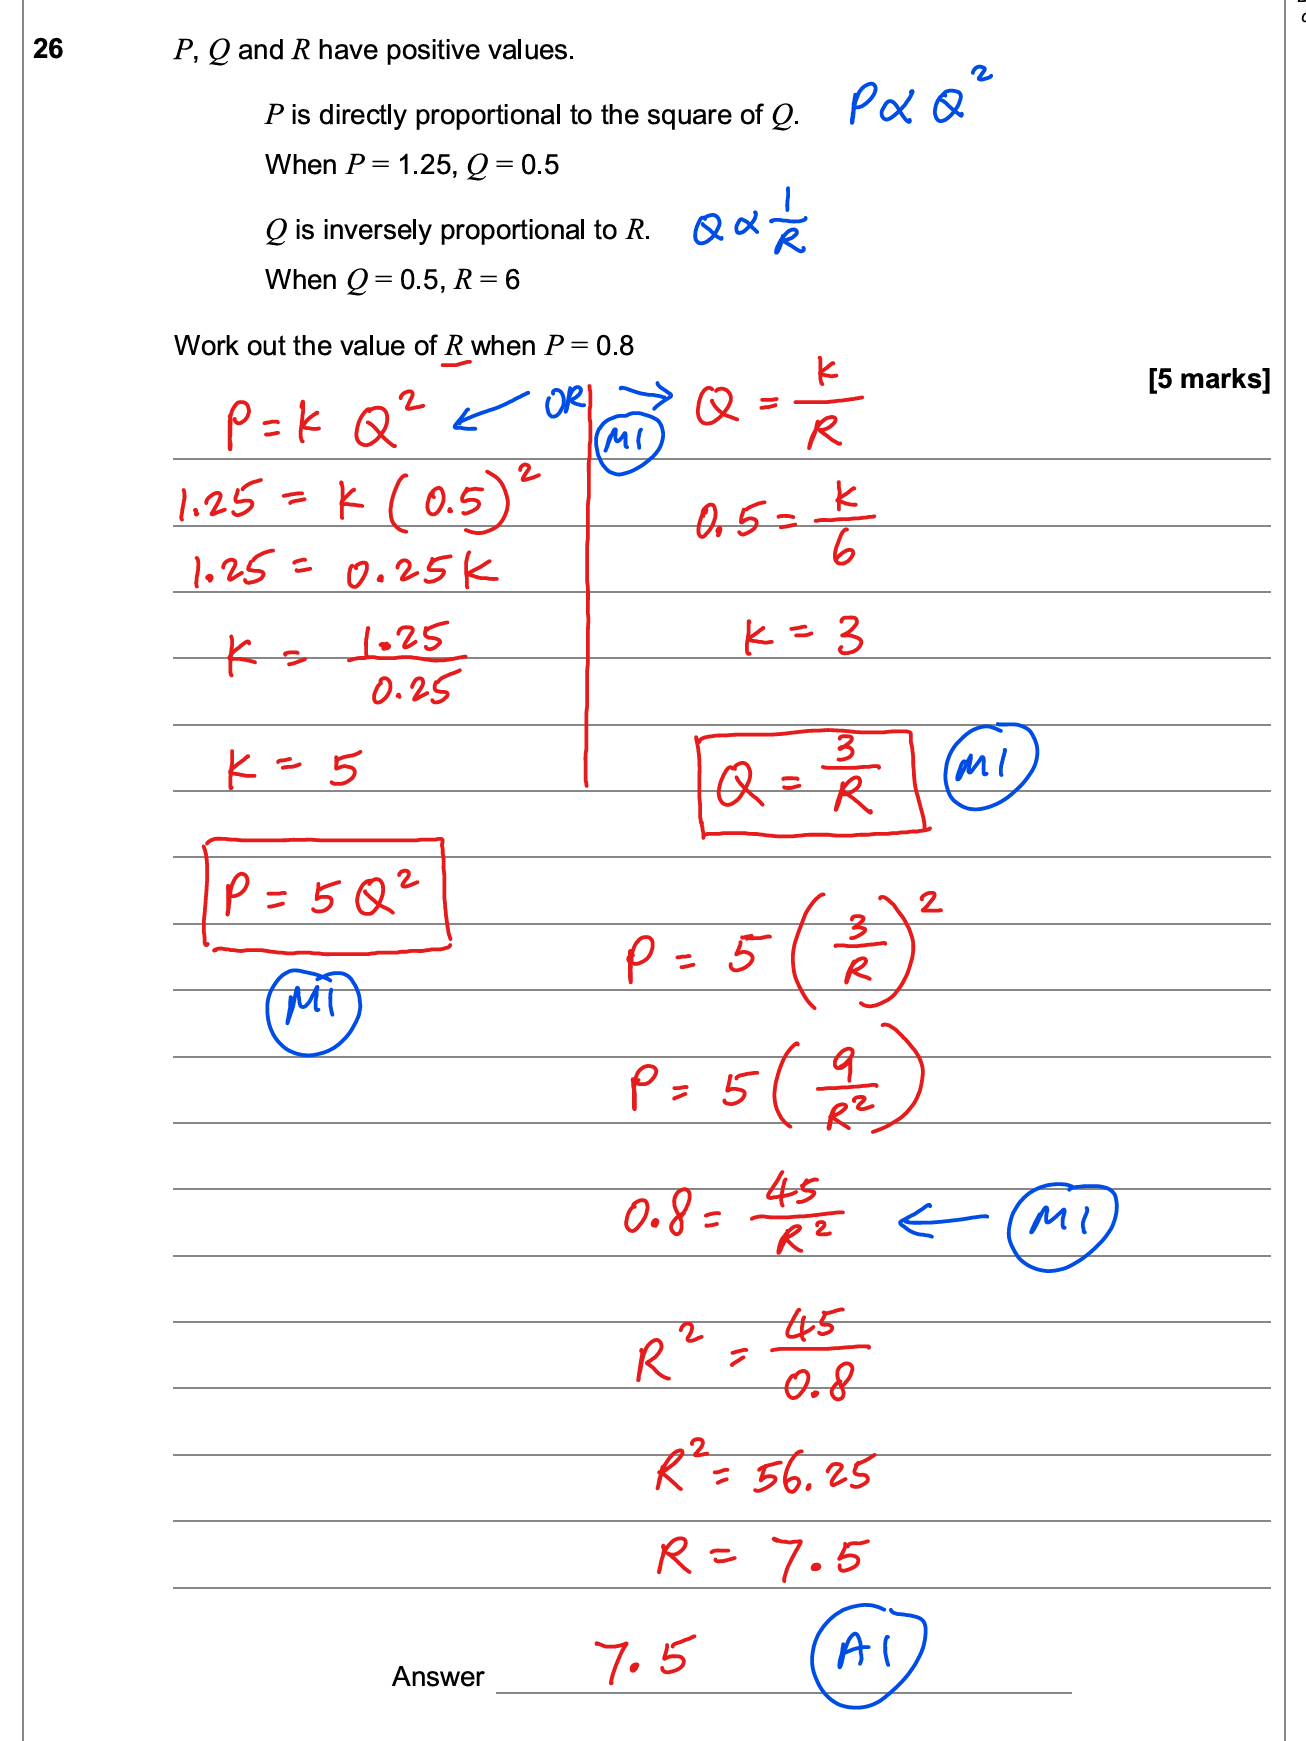 26 P, Q and R have positive values.
P is directly proportional to the square of Q. P ∝ Q²
When P = 1.25, Q = 0.5
Q is inversely proportional to R. Q ∝ 1/R
When Q = 0.5, R = 6
Work out the value of R when P = 0.8
[5 marks]
P = k Q² ← OR → Q = k/R
M1
1.25 = k (0.5)²
0.5 = k/6
1.25 = 0.25k
k = 1.25/0.25
k = 3
k = 5
Q = 3/R M1
P = 5Q²
M1
P = 5 (3/R)²
P = 5 (9/R²)
0.8 = 45/R² ← M1
R² = 45/0.8
R² = 56.25
R = 7.5
Answer 7.5 A1